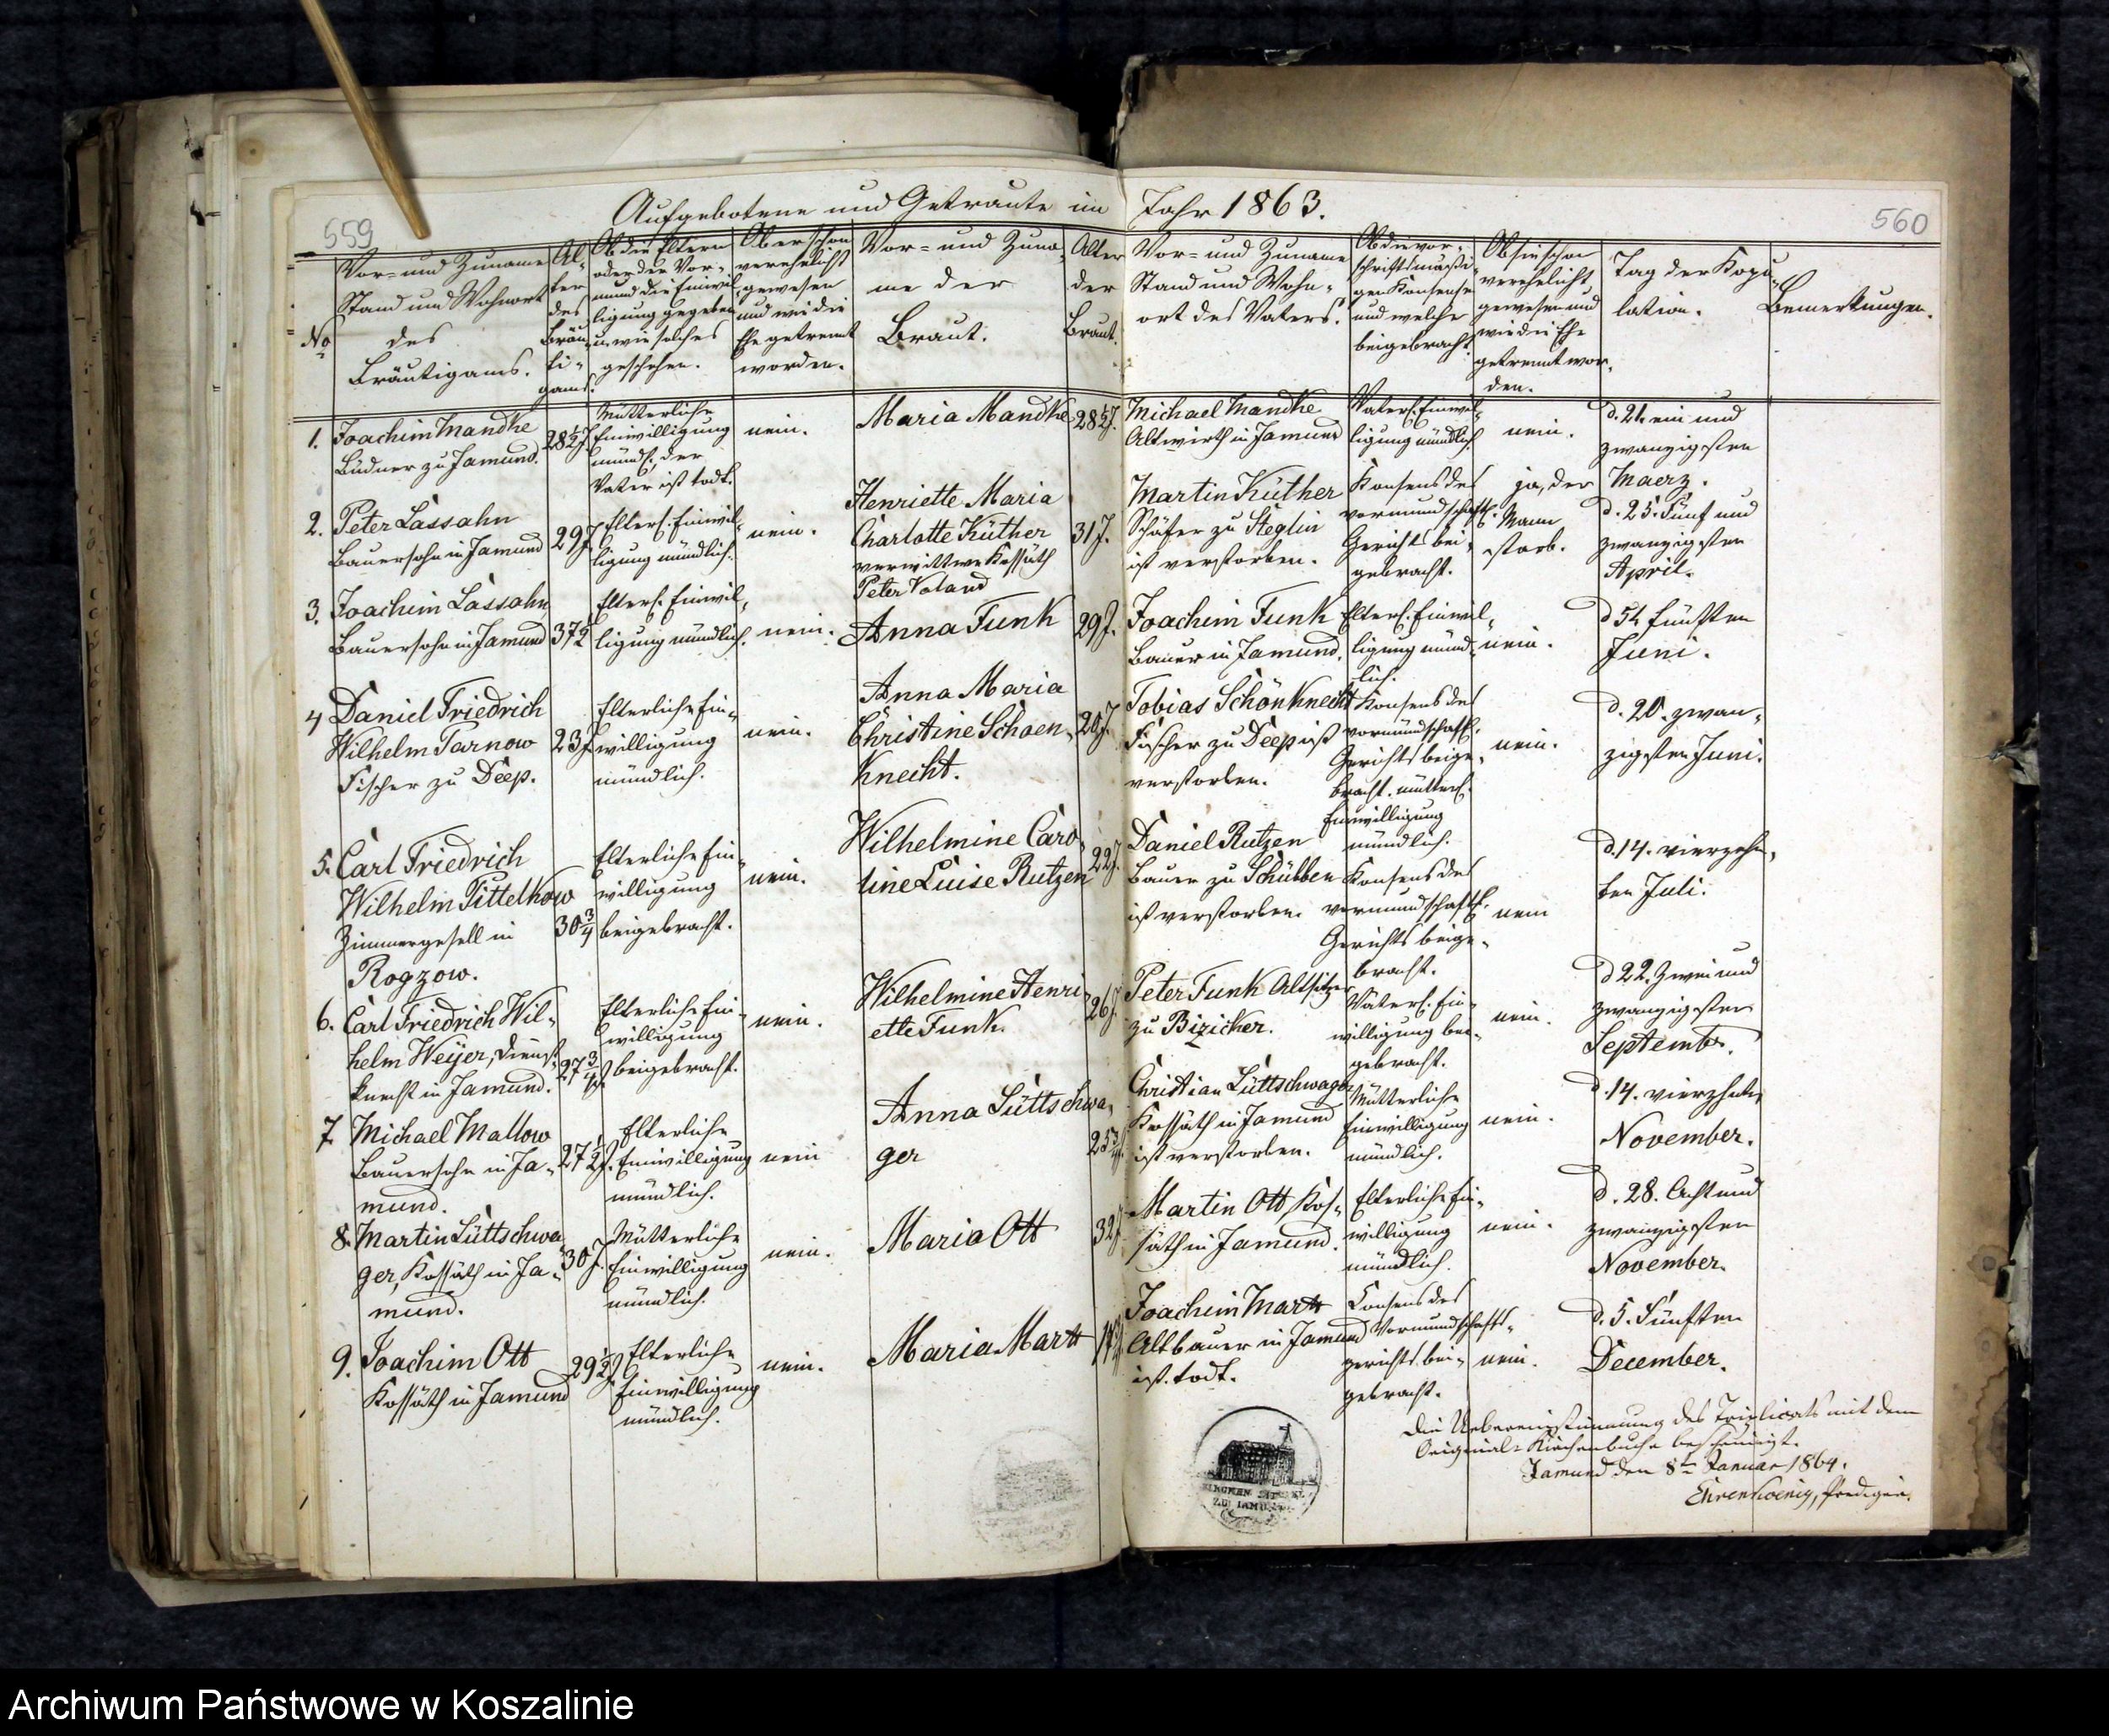 559
Aufgebotene und Getraute im Jahr 1863.
560
No
Vor- und Zuname
Stand und Wohnort
des
Bräutigams.
Al-
ter
des
Bräu-
ti-
gams.
Ob die Eltern
oder der Vor-
mund die Einwil-
ligung gegeben
u. wie solches
geschehen.
Ob er schon
verehelicht
gewesen
und wie die
Ehe getrennt
worden.
Vor- und Zuna-
me der
Braut.
Alter
der
Braut.
Vor- und Zuname
Stand und Wohn-
ort des Vaters.
Ob die vor-
schriftsmäßi-
gen Konsense
und welche
beigebracht.
Ob sie schon
verehelicht
gewesen und
wie die Ehe
getrennt wor-
den.
Tag der Kopu-
lation.
Bemerkungen.
1. Joachim Mandke
Büdner zu Jamund.
28 1/2 J.
Mütterliche
Einwilligung
mündl., der
Vater ist todt.
nein.
Maria Mandke
28 1/2 J.
Michael Mandke
Altwirth in Jamund
Väterl. Einwil-
ligung mündlich.
nein.
d. 21. ein und
zwanzigsten
Maerz.
2. Peter Lassahn
Bauersohn in Jamund
29 J.
Elterl. Einwil-
ligung mündlich.
nein.
Henriette Maria
Charlotte Küther
verwittwe Kossäth
Peter Voland
31 J.
Martin Küther
Schäfer zu Steglin
ist verstorben.
Konsens des
vormundschaftl.
Gerichts bei-
gebracht.
ja, der
Mann
starb.
d. 25. Fünf und
zwanzigsten
April.
3. Joachim Lassahn
Bauersohn in Jamund
37 1/2
Elterl. Einwil-
ligung mündlich.
nein.
Anna Funk
29 J.
Joachim Funk
Bauer in Jamund.
Elterl. Einwil-
ligung münd-
lich.
nein.
d 5t. fünften
Juni.
4 Daniel Friedrich
Wilhelm Tarnow
Fischer zu Deep.
23 J.
Elterliche Ein-
willigung
mündlich.
nein.
Anna Maria
Christine Schoen-
knecht.
20 J.
Tobias Schönknecht
Fischer zu Deep ist
verstorben.
Konsens des
vormundschaftl.
Gerichts beige-
bracht. mütterl.
Einwilligung
mündlich.
nein.
d. 20. zwan-
zigsten Juni.
5. Carl Friedrich
Wilhelm Tittelkow
Zimmergesell in
Rogzow.
30 3/4
Elterliche Ein-
willigung
beigebracht.
nein.
Wilhelmine Caro-
line Luise Rutzen
22 J.
Daniel Rutzen
Bauer zu Schübben
ist verstorben.
Konsens des
vormundschaftl.
Gerichts beige-
bracht.
nein
d. 14. vierzehn-
ten Juli.
6. Carl Friedrich Wil-
helm Weyer, Dienst-
knecht in Jamund.
27 3/4 J.
Elterliche Ein-
willigung
beigebracht.
nein.
Wilhelmine Henri-
ette Funk.
26 J.
Peter Funk Altsitzer
zu Bizicker.
Väterl. Ein-
willigung bei-
gebracht.
nein.
d 22. Zwei und
zwanzigsten
Septembr.
7. Michael Mallow
Bauersohn in Ja-
mund.
27 1/2 J.
Elterliche
Einwilligung
mündlich.
nein
Anna Lüttschwa-
ger
25 3/4 J.
Christian Lüttschwager
Kossäth in Jamund
ist verstorben.
Mütterliche
Einwilligung
mündlich.
nein.
d. 14. vierzehnten
November.
8. Martin Lüttschwa-
ger, Kossäth in Ja-
mund.
30 J.
Mütterliche
Einwilligung
mündlich.
nein.
Maria Ott
32 J.
Martin Ott, Kos-
säth in Jamund.
Elterliche Ein-
willigung
mündlich.
nein.
d. 28. Acht und
zwanzigsten
November.
9. Joachim Ott
Kossäth in Jamund
29 1/2 J.
Elterliche
Einwilligung
mündlich.
nein.
Maria Martt
Joachim Martt
Altbauer in Jamund
ist todt.
Consens des
Vormundschafts-
gerichts bei-
gebracht.
nein.
d. 5. Fünften
December.
Die Uebereinstimmung des Triplicats mit dem
Original-Kirchenbuche bescheinigt.
Jamund den 8ten Januar 1864.
Ehrenkoenig, Prediger.
KIRCHEN SIEGEL
ZU JAMUND
Archiwum Państwowe w Koszalinie